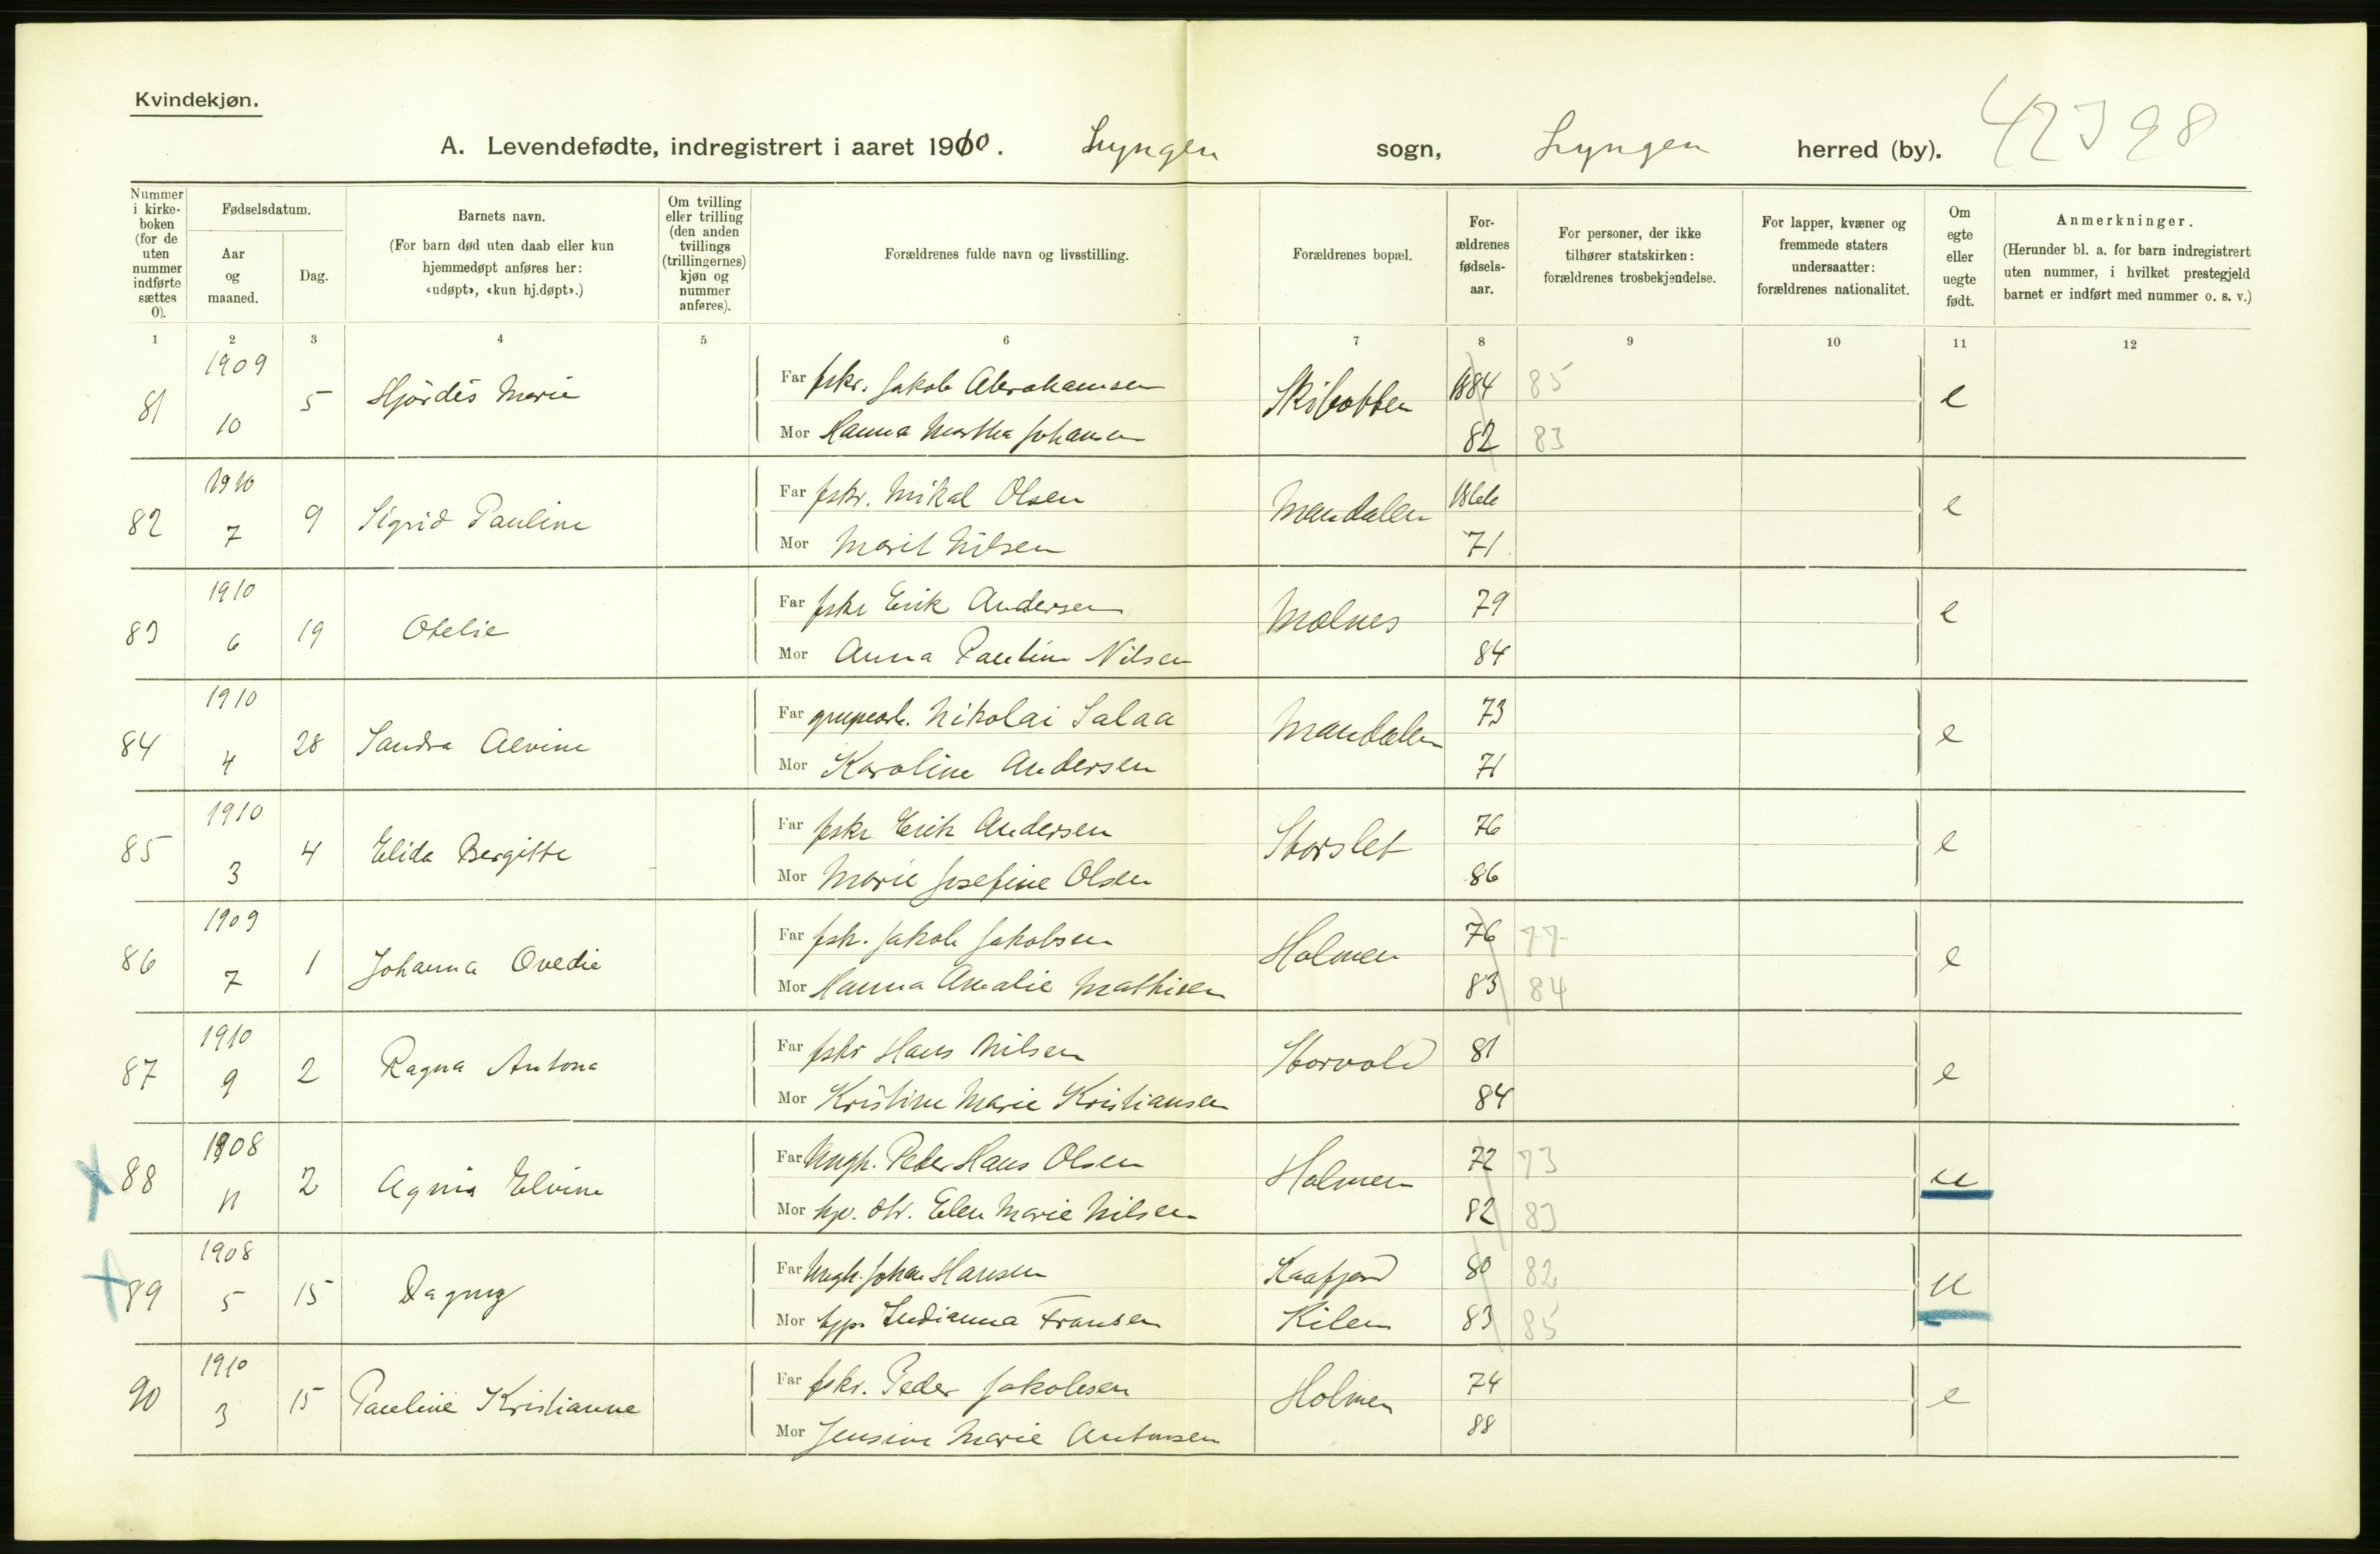 Kvindekjøn.
A. Levendefødte, indregistrert i aaret 1910. Lyngen sogn, Lyngen herred (by). 42398
Nummer i kirke-boken (for de uten nummer indførte sættes 0).
Fødselsdatum.
Aar og maaned.
Dag.
Barnets navn.
(For barn død uten daab eller kun hjemmedøpt anføres her: «udøpt», «kun hj.døpt».)
Om tvilling eller trilling (den anden tvillings (trillingernes) kjøn og nummer anføres).
Forældrenes fulde navn og livsstilling.
Forældrenes bopæl.
For-ældrenes fødsels-aar.
For personer, der ikke tilhører statskirken: forældrenes trosbekjendelse.
For lapper, kvæner og fremmede staters undersaatter: forældrenes nationalitet.
Om egte eller uegte født.
Anmerkninger.
(Herunder bl. a. for barn indregistrert uten nummer, i hvilket prestegjeld barnet er indført med nummer o. s. v.)
1 2 3 4 5 6 7 8 9 10 11 12
81 1909 10 5 Hjördis Marie Far fskr. Jakob Abrahamsen Skibotten 1884 85 e
Mor Hanna Martha Johansen 82 83
82 1910 7 9 Sigrid Pauline Far fskr. Mikal Olsen Mandalen 1866 e
Mor Marit Nilsen 71
83 1910 6 19 Otelie Far fskr Erik Andersen Molnes 79 e
Mor Anna Pauline Nilsen 84
84 1910 4 28 Sandra Alvine Far grupearb. Nikolai Salaa Mandalen 73 e
Mor Karoline Andersen 71
85 1910 3 4 Elida Bergitte Far fskr Erik Andersen Storslet 76 e
Mor Marie Josefine Olsen 86
86 1909 7 1 Johanna Ovedie Far fsk. Jakob Jakobsen Holmen 76 77 e
Mor Hanna Amalie Mathisen 83 84
87 1910 9 2 Ragna Antona Far fskr Hans Nilsen Storvold 81 e
Mor Kristine Marie Kristiansen 84
88 1908 11 2 Agnis Elvine Far Ungk. Peder Hans Olsen Holmen 72 73 u
Mor Elen Marie Nilsen 82 83
89 1908 5 15 Dagny Far Ungk. Johan Hansen Kaafjord 80 82 u
Mor Indianna Fransen Kilen 83 85
90 1910 3 15 Pauline Kristianne Far fskr. Peder Jakobsen Holmen 74 e
Mor Jensine Marie Antonsen 88